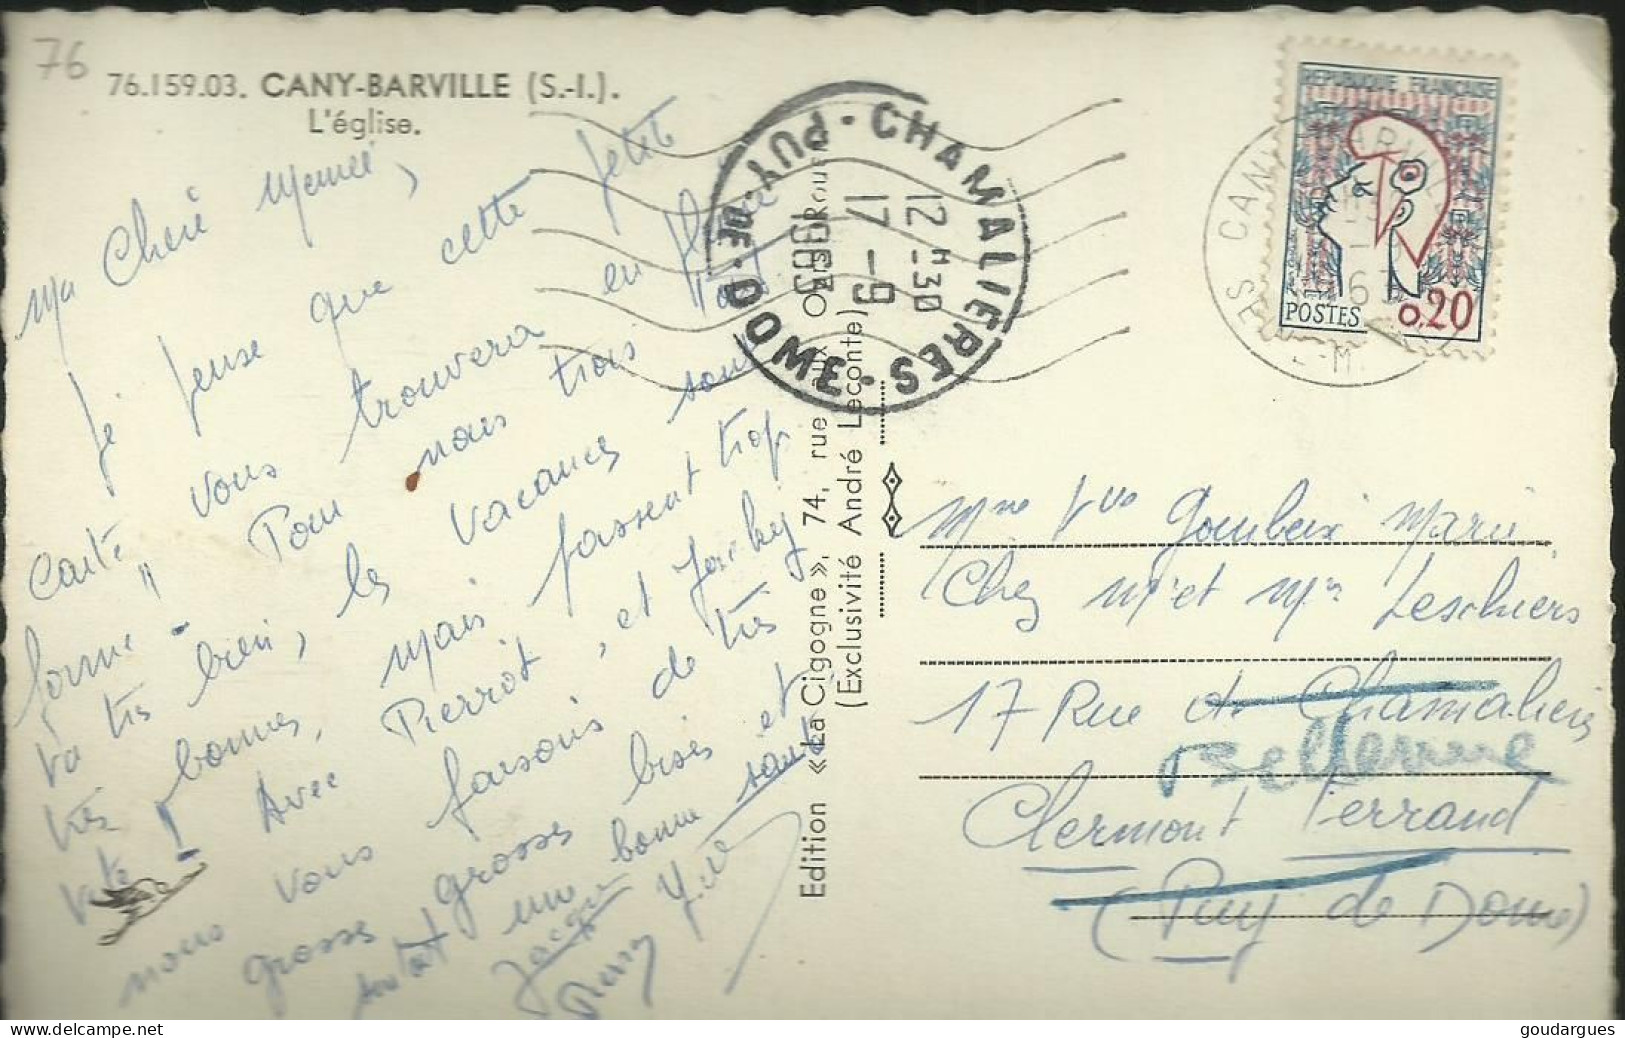 76
76.159.03. CANY-BARVILLE (S.-I.).
L'église.
Ma Chère Mémé,
Je pense que cette petite
carte vous trouvera en pleine
forme. Pour nous trois tout
va très bien, les vacances sont
très bonnes, mais passent trop
vite! Avec Pierrot, et Jacky
nous vous faisons de très
grosses grosses bises et
surtout une bonne santé
Edition « La Cigogne », 74, rue aux Ours, Rouen
(Exclusivité André Leconte)
CHAMALIERES · PUY-DE-DOME
12 H 30
17 - 9
1963
CANY BARVILLE
SEINE-M.
63
REPUBLIQUE FRANÇAISE
POSTES 0,20
Mme Vve Goubeix Marie
Chez Mr et Mme Leschiers
17 Rue de Chamalières
Bellerive
Clermont Ferrand
(Puy de Dome)
goudargues
© delcampe.net